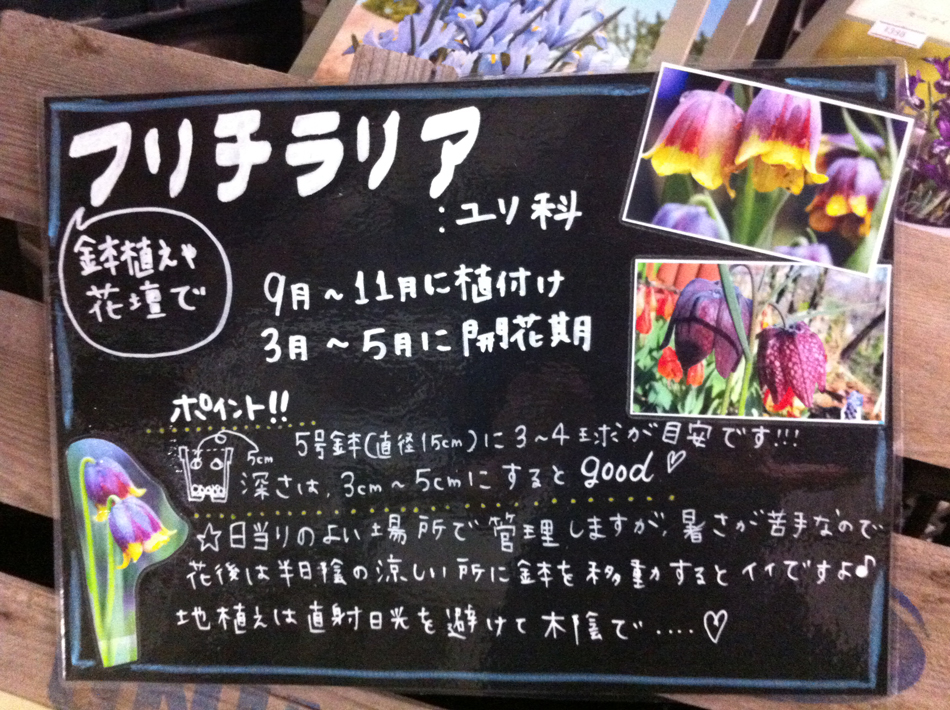 フリチラリア
:ユリ科
鉢植えや
花壇で
9月〜11月に植付け
3月〜5月に開花期
ポイント!!
5号鉢(直径15cm)に3〜4球が目安です!!!
5cm
深さは、3cm〜5cmにするとgood♡
☆日当りのよい場所で管理しますが、暑さが苦手なので
花後は半日陰の涼しい所に鉢を移動するとイイですよ♪
地植えは直射日光を避けて木陰で....♡